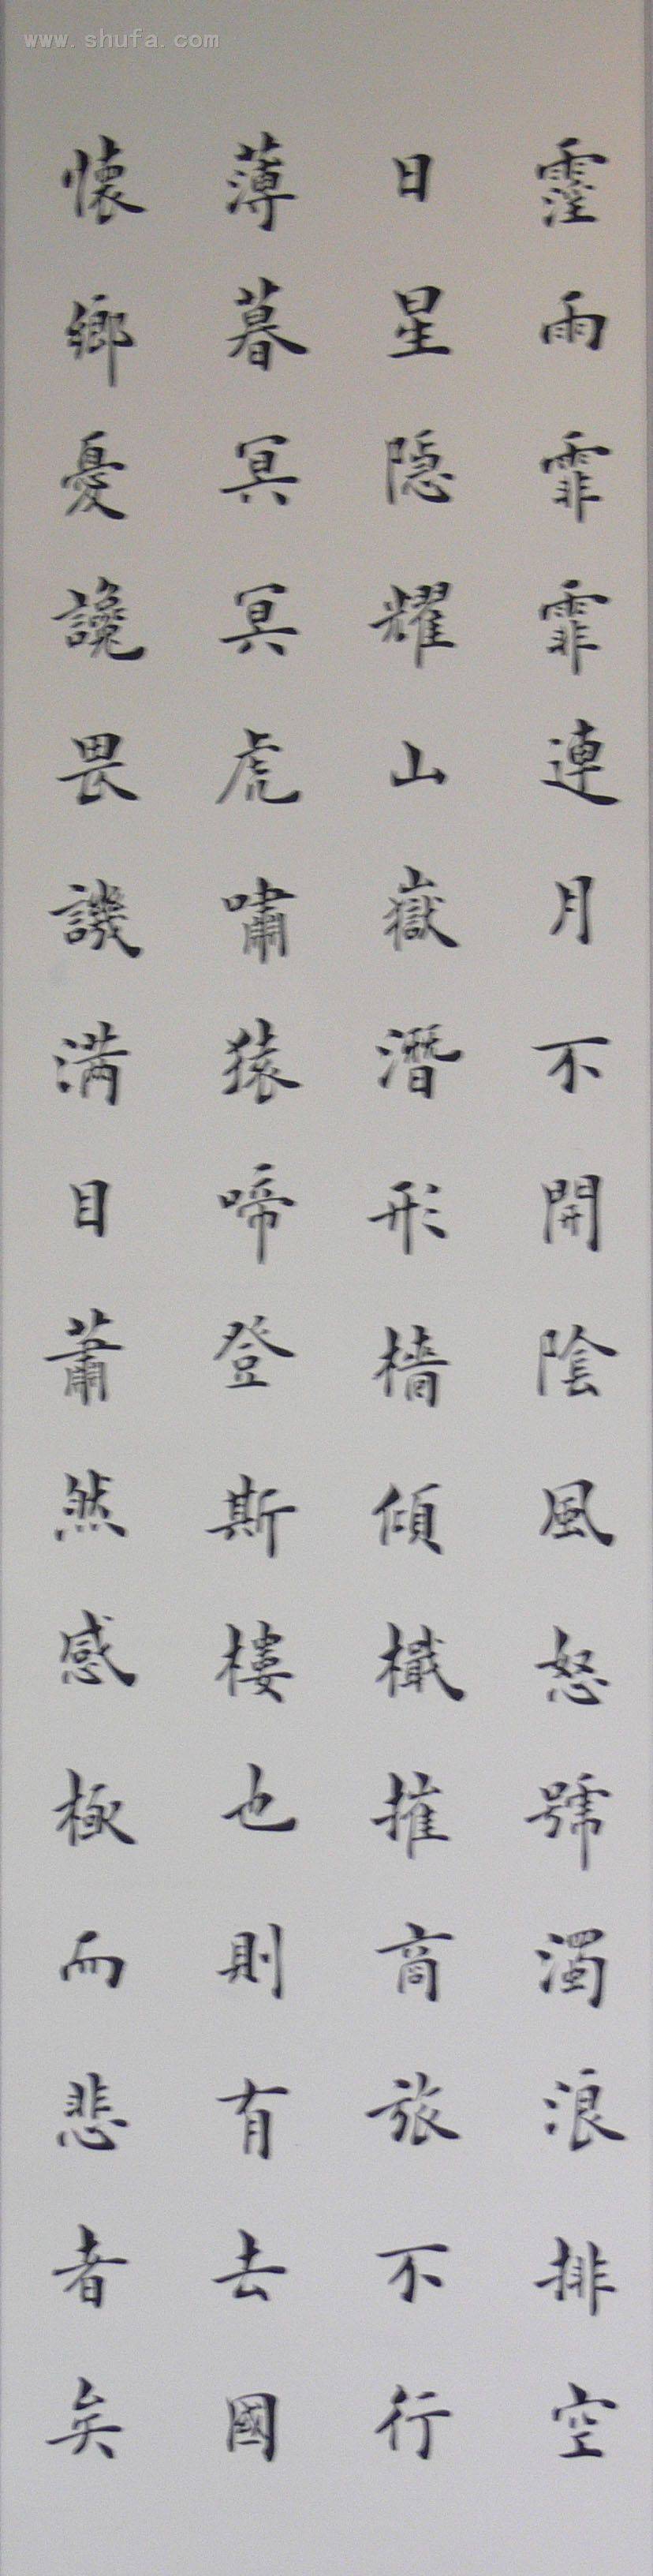 www.shufa.com
霪雨霏霏連月不開陰風怒號濁浪排空
日星隱耀山嶽潛形檣傾檝摧商旅不行
薄暮冥冥虎嘯猿啼登斯樓也則有去國
懷鄉憂讒畏譏满目蕭然感極而悲者矣